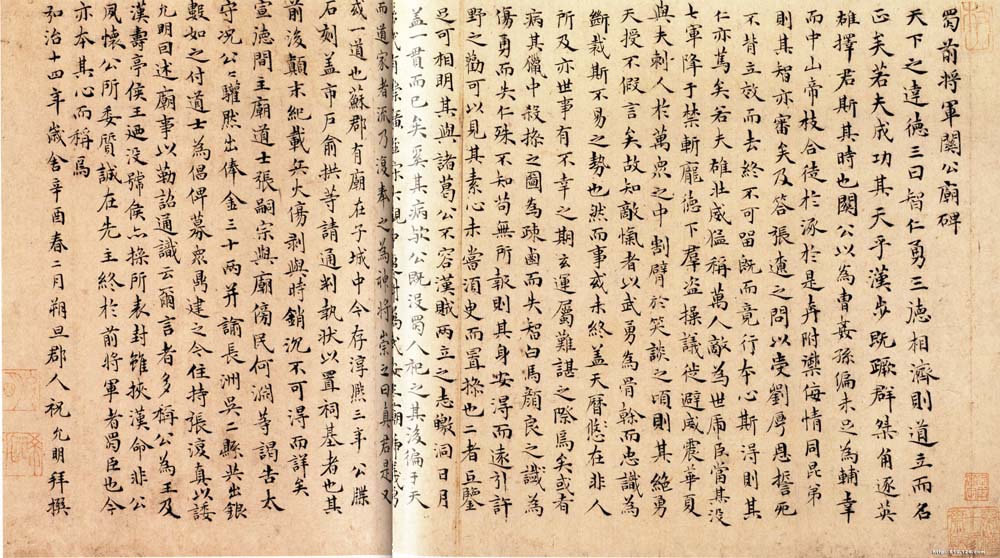 蜀前將軍關公廟碑
天下之達德三曰智仁勇三德相濟則道立而名
正矣若夫成功其天乎漢步既蹶群桀角逐英
雄擇君斯其時也關公以為曹姦孫偏未足為輔幸
而中山帝枝合徒於涿於是奔附禦侮情同昆弟
則其智亦審矣及答張遼之問以受劉厚恩誓死
不背立效而去終不可留既而竟行本心斯得則其
仁亦篤矣若夫雄壯威猛稱萬人敵為世虎臣當其沒
七軍降于禁斬龐德下群盜操議徙避威震華夏
與夫刺人於萬眾之中割臂於笑談之頃則其絕勇
天授不假言矣故知敵愾者以武勇為骨榦而忠識為
斷裁斯不易之勢也然而事或未終蓋天曆悠悠在非人
所及亦世事有不幸之期玄運屬難諶之際焉矣或者
病其獵中殺操之圖為疎鹵而失智白馬顏良之誠為
傷勇而失仁殊不知苟無所報則其身安得而遠引許
野之勸可以見其素心未嘗須臾而置操也二者互鑒
足可相明其與諸葛公不容漢賊兩立之志皦洞日月
蓋一貫而已矣奚其病歟公既沒蜀人祀之其後徧于天
而道家者流乃復奉之為神將崇之曰真君是又
或一道也蘇郡有廟在子城中今存淳熙三年公牒
石刻蓋市戶俞拱等請通判執狀以置祠基者也其
前後顛末紀載兵火傷剥與時銷沉不可得而詳矣
宣德間主廟道士張嗣宗與廟傍民何淵等謁告太
守况公公驩然出俸金三十兩并諭長洲吳二縣共出銀
數如之付道士為倡俾募眾鼎建之今住持張復真以諉
允明回述廟事以勒詔通識云爾言者多稱公為王及
漢壽亭侯王廼沒號侯亦操所表封雖挾漢命非公
夙懷公所委質誠在先主終於前將軍者蜀臣也今
亦本其心而稱焉
弘治十四年歲舍辛酉春二月朔旦郡人祝允明拜撰